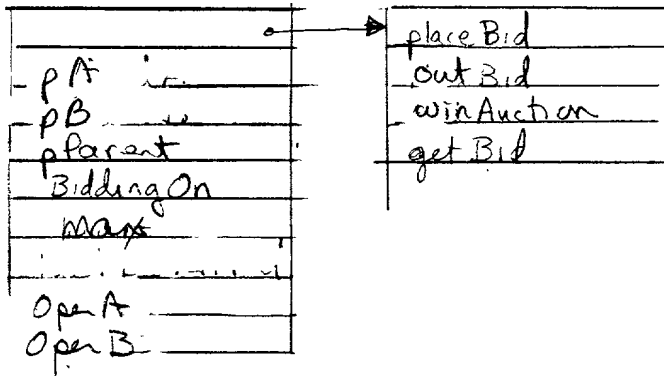 pA
pB
pParent
BiddingOn
max
OpenA
OpenB
placeBid
outBid
winAuction
getBid